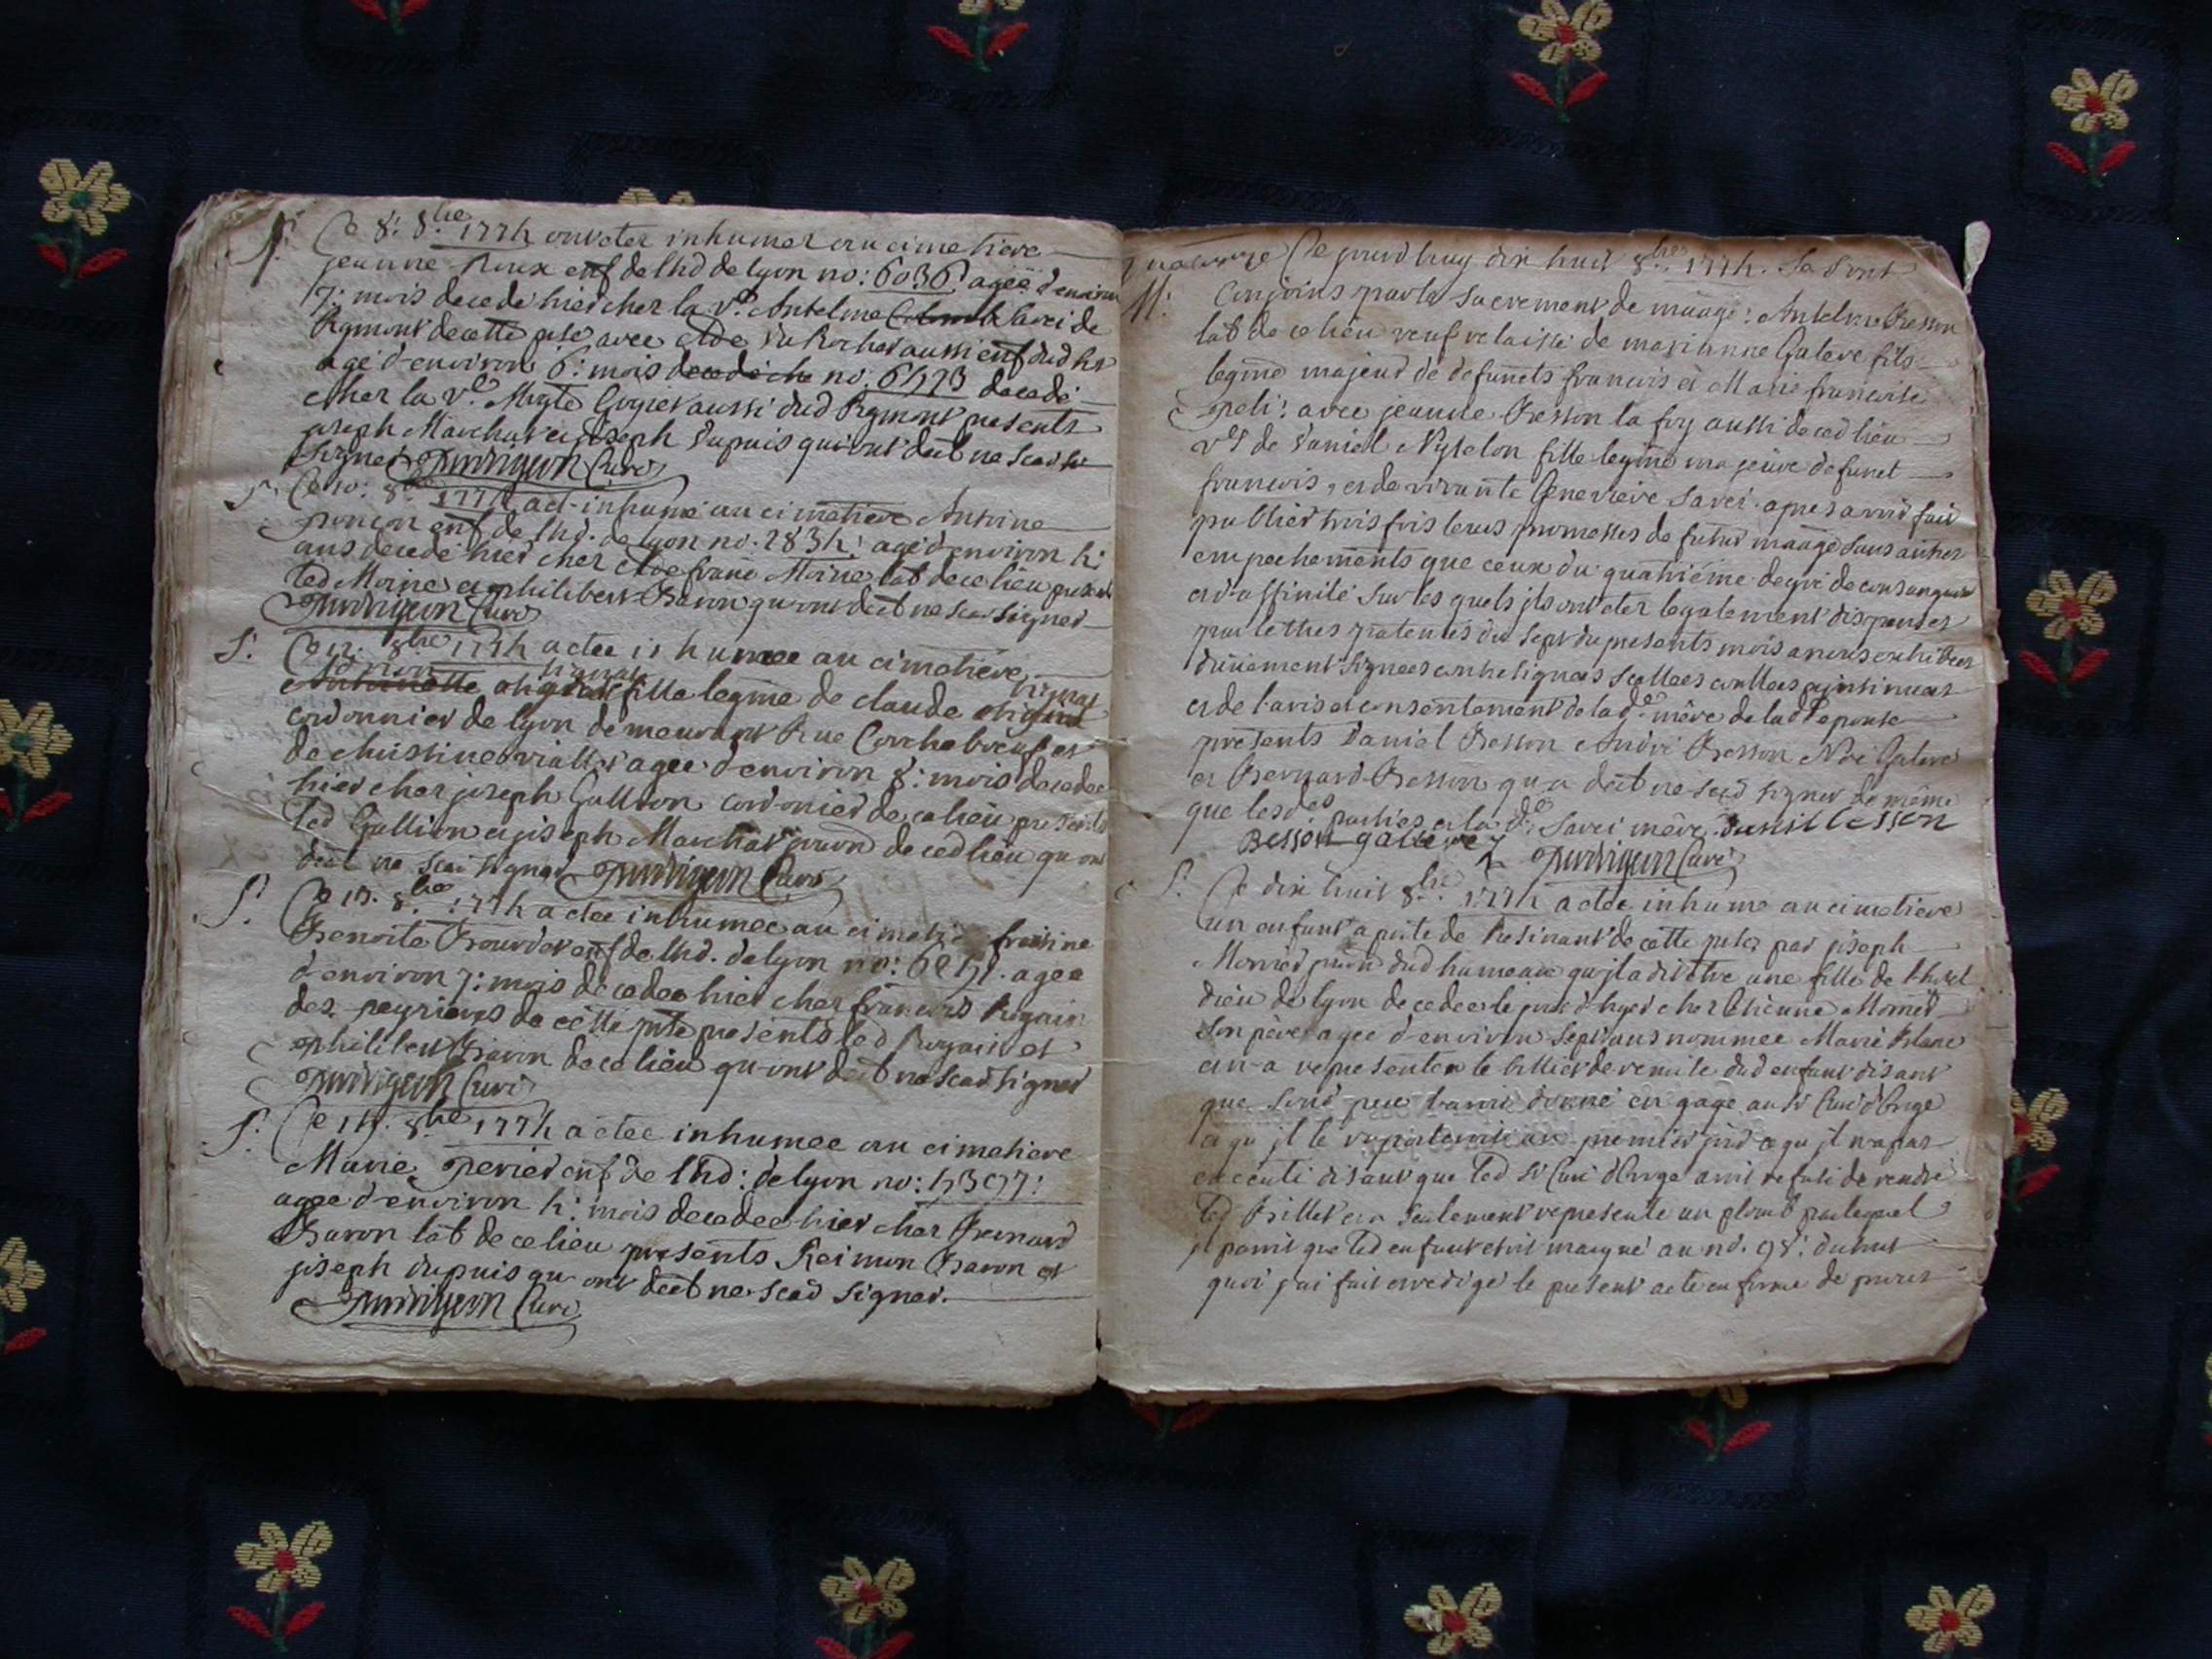 S. Ce 8: 8.bre 1774 ont eter inhumer au cimetiere
jeanne Roux enf de lhd de lyon no: 6036: agée d'environ
7: mois decede hier cher la v.e Antelme Savei de
Rgmont de cette pse, avec Clde du Rocher aussi enf dud hd
agé d'environ 6: mois decedé che no: 6473 decedé
cher la v.e Mugte Goyet aussi dud Rgmont presents
joseph Marchat et joseph dupuis qui ont déct ne scavoir
signer Curé
S. Ce 10: 8.bre 1774 a et inhumé au cimetiere Antoine
Poncon enf de lhd. de lyon no. 2834: agé d'environ 4:
ans decede hier cher Clde franc Moine lab de ce lieu present
led Moine et philibert Baron qu ont déct ne scav signer
Curé
S. Ce 12. 8bre 1774 a ctee inhumee au cimetiére
fille legme de claude
cordonnier de lyon demeurant Rue Corchebœuf et
de christine vialle agee d'environ 8: mois decedee
hier cher joseph Gallion cordonier de ce lieu presents
led Gallion et joseph Marchat journ de ced lieu qu ont
déct ne scai signer Curé
S. Ce 13. 8.bre 1774 a ctee inhumee au cimetie
Benoite Bourdet enf de lhd. de lyon no: agee
d'environ 7: mois decedee hier cher francois Rugain
des peyrieres de cette pste presents led Rugain et
philibert Baron de ce lieu qu-ont déct ne scav signer
Curé
S. Ce 14. 8bre 1774 a ctee inhumee au cimetiere
Marie Perier enf de lhd: de lyon no: 4397:
agee d'environ 4: mois decedee hier cher Bernard
Baron lab de ce lieu presents Reimon Baron et
joseph dupuis qu ont déct ne scav signer.
Curé
quatorze Ce jourd huy dix huit 8.bre 1774. Se sont
M: conjoins par le sacrement de maage: Antelme Besson
lab de ce lieu veuf relaissé de marianne Galere fils
legme majeur de defuncts francois et Marie francoise
Peli: avec jeanne Besson la foy aussi de ced lieu
v.e de daniel Nyselon fille legme majeure defunct
francois, et de vivante Genevieve Savei. apres avoir fait
publier trois fois leurs promesses de futur maage sans autres
empechements que ceux du quatriéme degré de consanguin
et d'affinité sur les quels ils ont eter legalement dispenser
par lettres patentes du sept du presents mois a nous exhibees
dûement signees contresignees scellees et insinuees
et de l'avis et consentement de la d.e mére de lad epouse
présents Daniel Besson André Besson Noé Galere
et Bernard Besson qu a déct ne scav signer de même
que les d.es parties et la d.e Savei mére. daniel besson
Besson galere Curé
S. Ce dix huit 8.bre 1774 a ctee inhume au cimetiere
un enfant aporté de Resinant de cette pste par joseph
Mornier journ dud hameau qu jl a dit être une fille de l'hotel
dieu de lyon decedee le jour d'hyer cher Etienne Mornier
son père agee d'environ sept ans nommee Marie Blanc
en a representer le billet de remite dud enfant disant
que sond pere l'avoit donné en gage au sr Curé d'Orge
a qu jl le raporteroit au premier jour a qu jl n'a pas
executé disant que led sr Curé d'Orge avoit refusé de rendre
led Billet en a seulement representé un plomb par lequel
jl paroit que led enfant etoit marqué au no. 98: durant
quoi j'ai fait et redigé le present acte en forme de proces